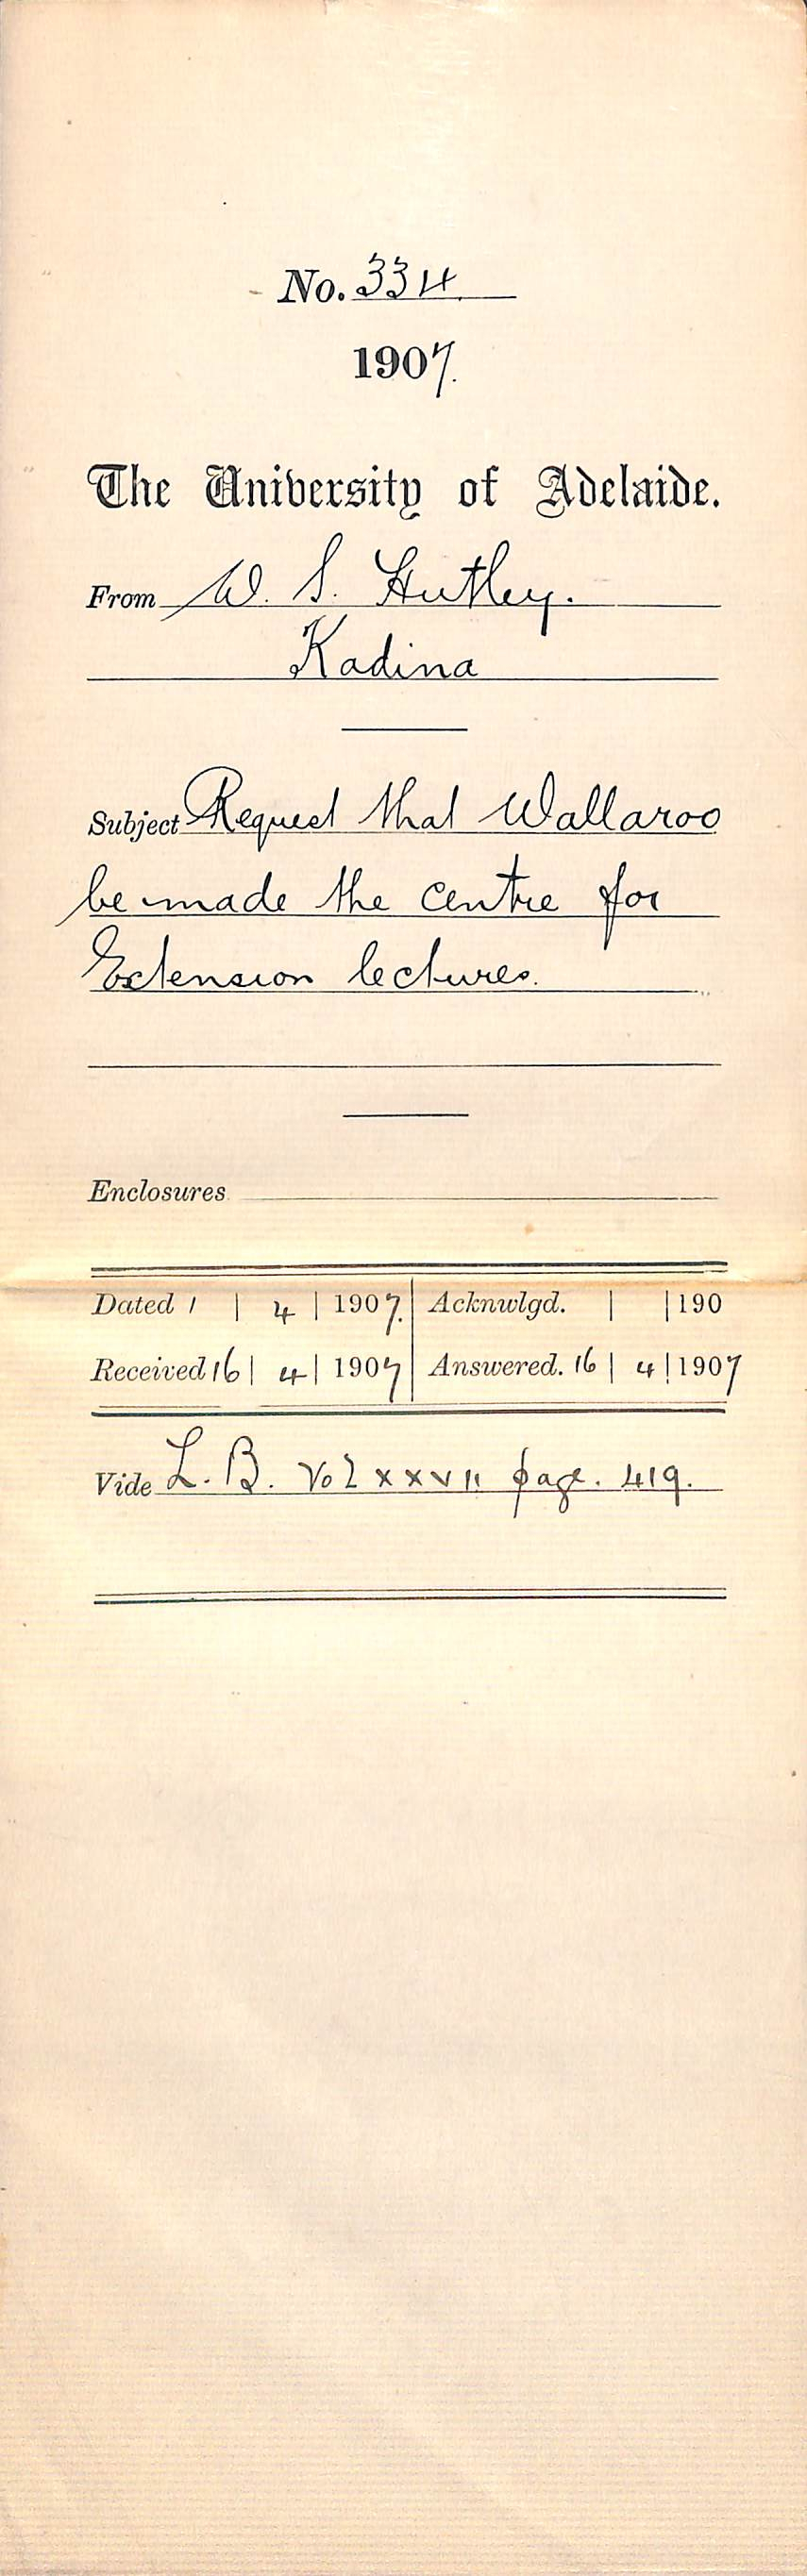 No. 334
1907.
The University of Adelaide.
From W. S. Hutley.
Kadina
Subject Request that Wallaroo
be made the centre for
Extension lectures.
Enclosures
Dated 1 | 4 | 1907. Acknwlgd. | | 190
Received 16 | 4 | 1907 Answered. 16 | 4 | 1907
Vide L. B. Vol xxvii page. 419.